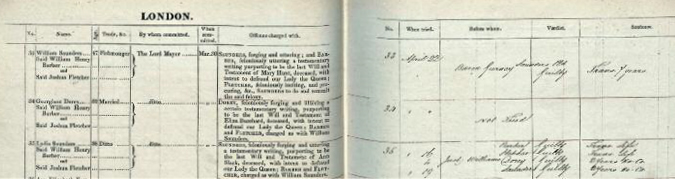 LONDON.
No. Name. Trade, &c. By whom committed. When committed. Offence charged with.
33 William Saunders 47 Fishmonger The Lord Mayor Mar. 30 SAUNDERS, forging and uttering; and BAR-
Said William Henry BER, feloniously uttering a testamentary
Barber writing purporting to be the last Will and
and Testament of Mary Hunt, deceased, with
Said Joshua Fletcher intent to defraud our Lady the Queen;
FLETCHER, feloniously inciting, and pro-
curing, &c., SAUNDERS to do and commit
the said felony.
34 Georgiana Dorey Married Ditto DOREY, feloniously forging and uttering a
Said William Henry certain testamentary writing, purporting
Barber to be the last Will and Testament of
and Eliza Burchard, deceased, with intent to
Said Joshua Fletcher defraud our Lady the Queen; BARBER
and FLETCHER, charged as with William
Saunders.
35 Lydia Saunders Ditto Ditto SAUNDERS, feloniously forging and uttering
Said William Henry a testamentary writing, purporting to be
Barber the last Will and Testament of Ann
and Slack, deceased, with intent to defraud
Said Joshua Fletcher our Lady the Queen; BARBER and FLET-
CHER, charged as with William Saunders.
No. When tried. Before whom. Verdict. Sentence.
33 April 22 Baron Gurney Saunders Guilty years
34 Not Tried
35 Guilty
Williams Dorey Guilty
Saunders Guilty